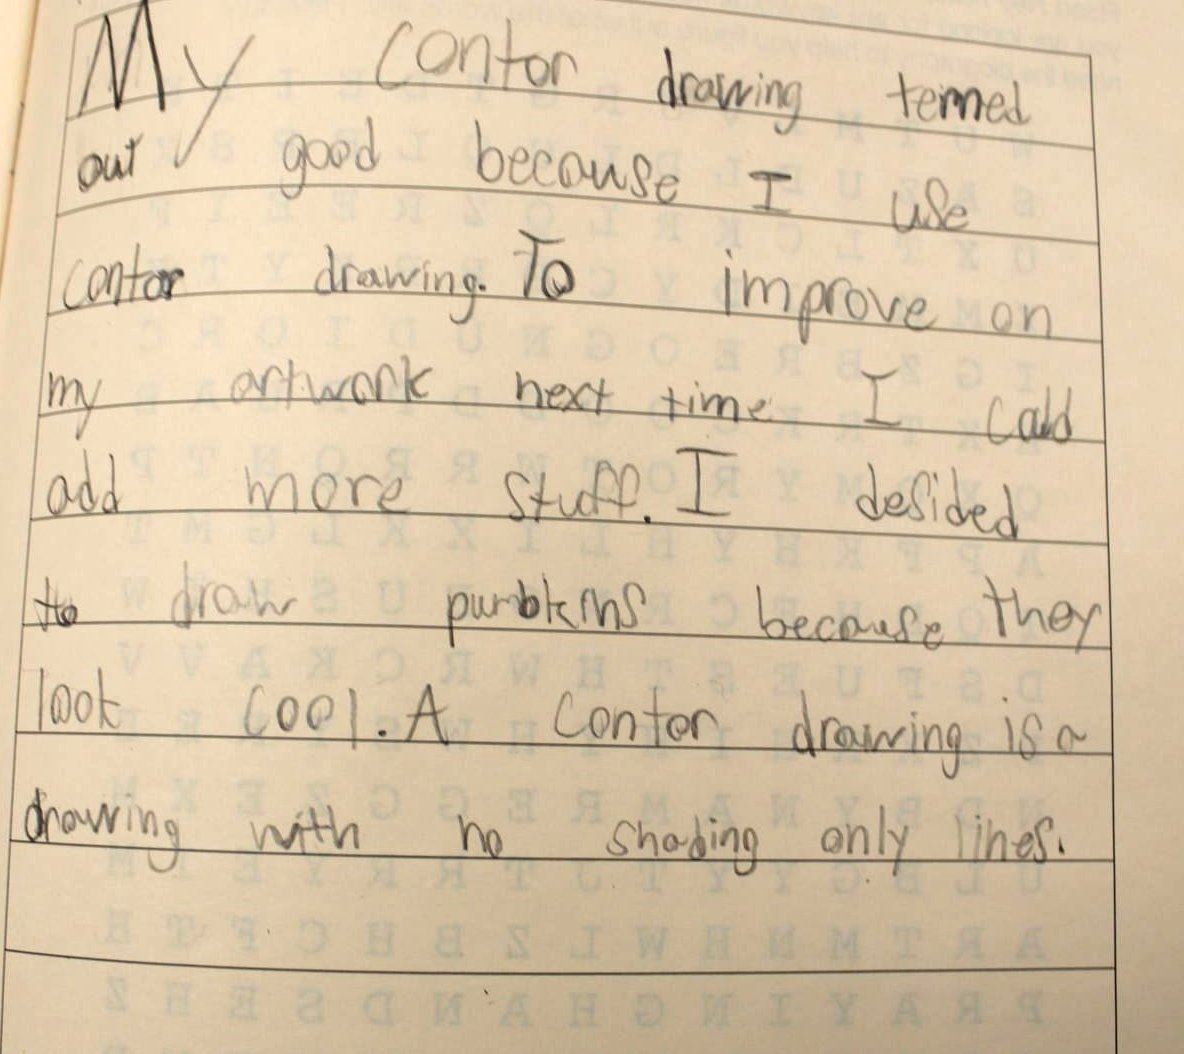 My contor drawing terned
out good because I use
contor drawing. To improve on
my artwork next time I cald
add more stuff. I desided
to draw pumbkins because they
look cool. A contor drawing is a
drawing with no shading only lines.